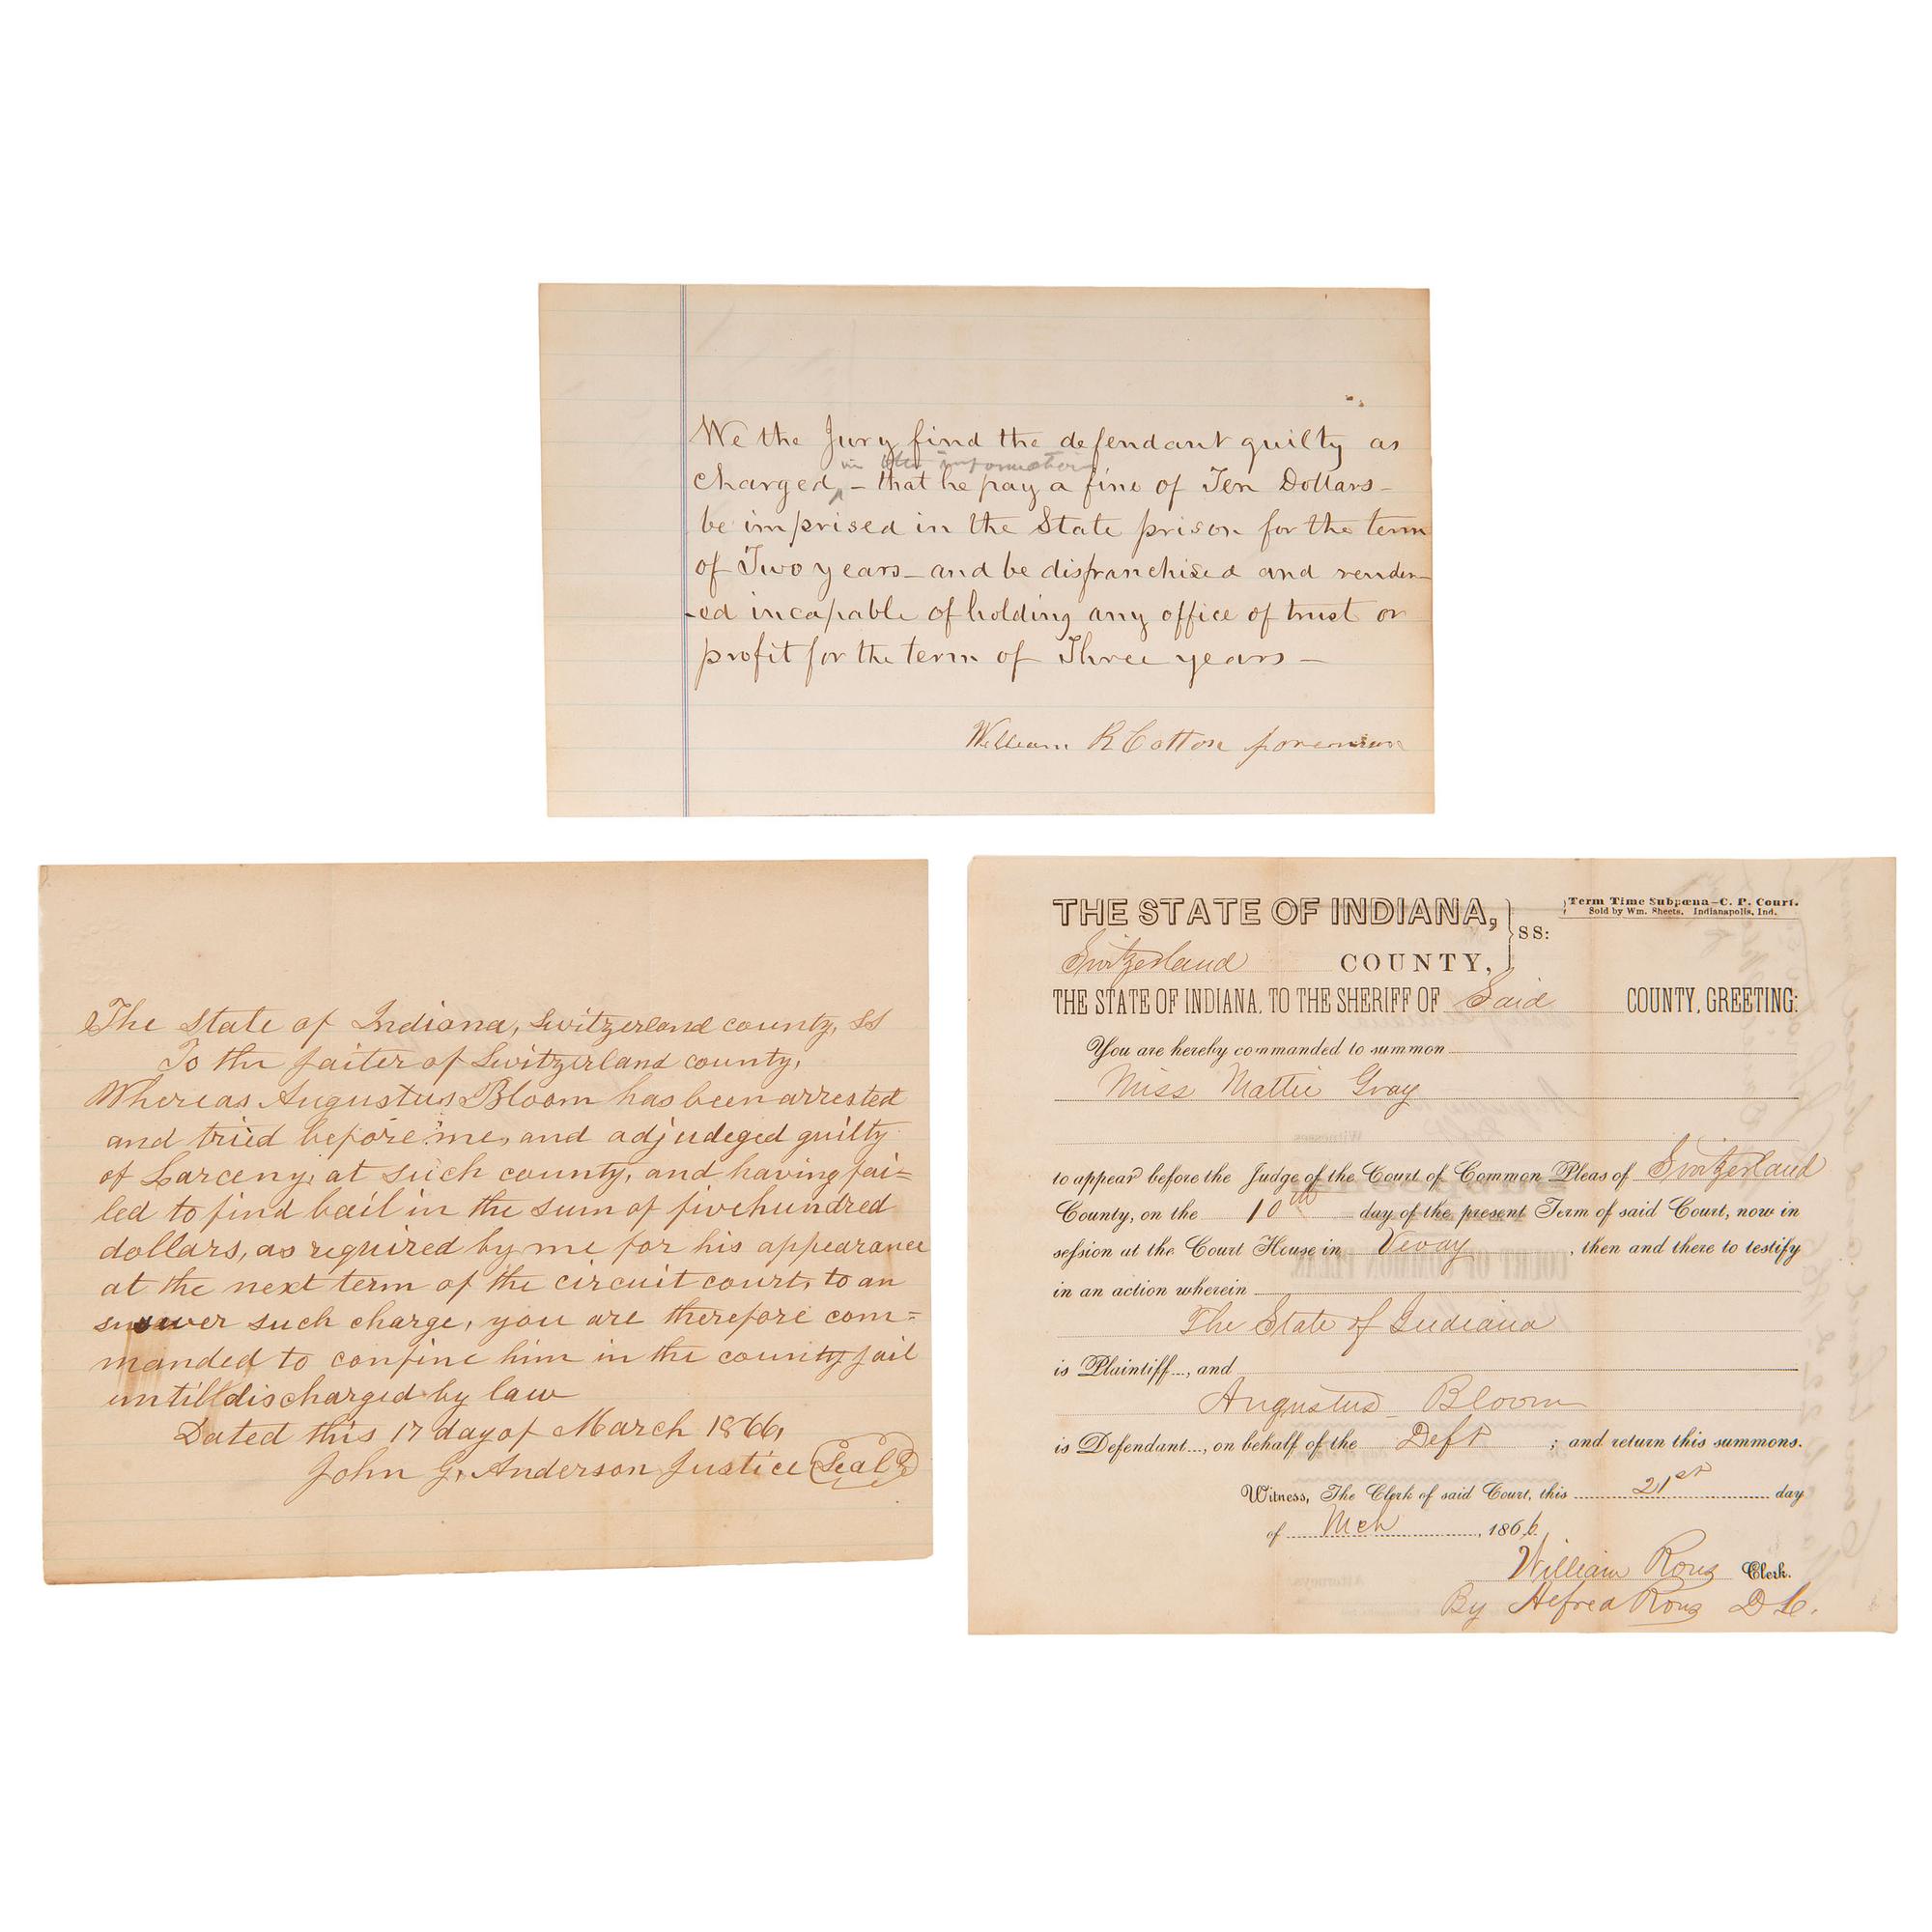 We the Jury find the defendant guilty as
in the information
charged ‸ – that he pay a fine of Ten Dollars –
be imprised in the State prison for the term
of Two years – and be disfranchised and render-
-ed incapable of holding any office of trust or
profit for the term of Three years –
William R Cotton foreman
The State of Indiana, Switzerland county, SS
To the Jailer of Switzerland county,
Whereas Augustus Bloom has been arrested
and tried before me, and adjudeged guilty
of Larceny, at such county, and having fai=
led to find bail in the sum of fivehundred
dollars, as required by me for his appearance
at the next term of the circuit court, to an
suwer such charge, you are therefore com=
manded to confine him in the county jail
untill discharged by law
Dated this 17 day of March 1866,
John G, Anderson Justice (Seal)
THE STATE OF INDIANA, } SS:
Term Time Subpœna–C. P. Court.
Sold by Wm. Sheets, Indianapolis, Ind.
Switzerland COUNTY,
THE STATE OF INDIANA, TO THE SHERIFF OF Said COUNTY, GREETING:
You are hereby commanded to summon
Miss Mattie Gray
to appear before the Judge of the Court of Common Pleas of Switzerland
County, on the 10th day of the present Term of said Court, now in
session at the Court House in Vevay, then and there to testify
in an action wherein
The State of Indiana
is Plaintiff..., and
Augustus Bloom
is Defendant..., on behalf of the Deft ; and return this summons.
Witness, The Clerk of said Court, this 21st day
of Mch, 1866
William Rous Clerk.
By Alfred Rous D C.